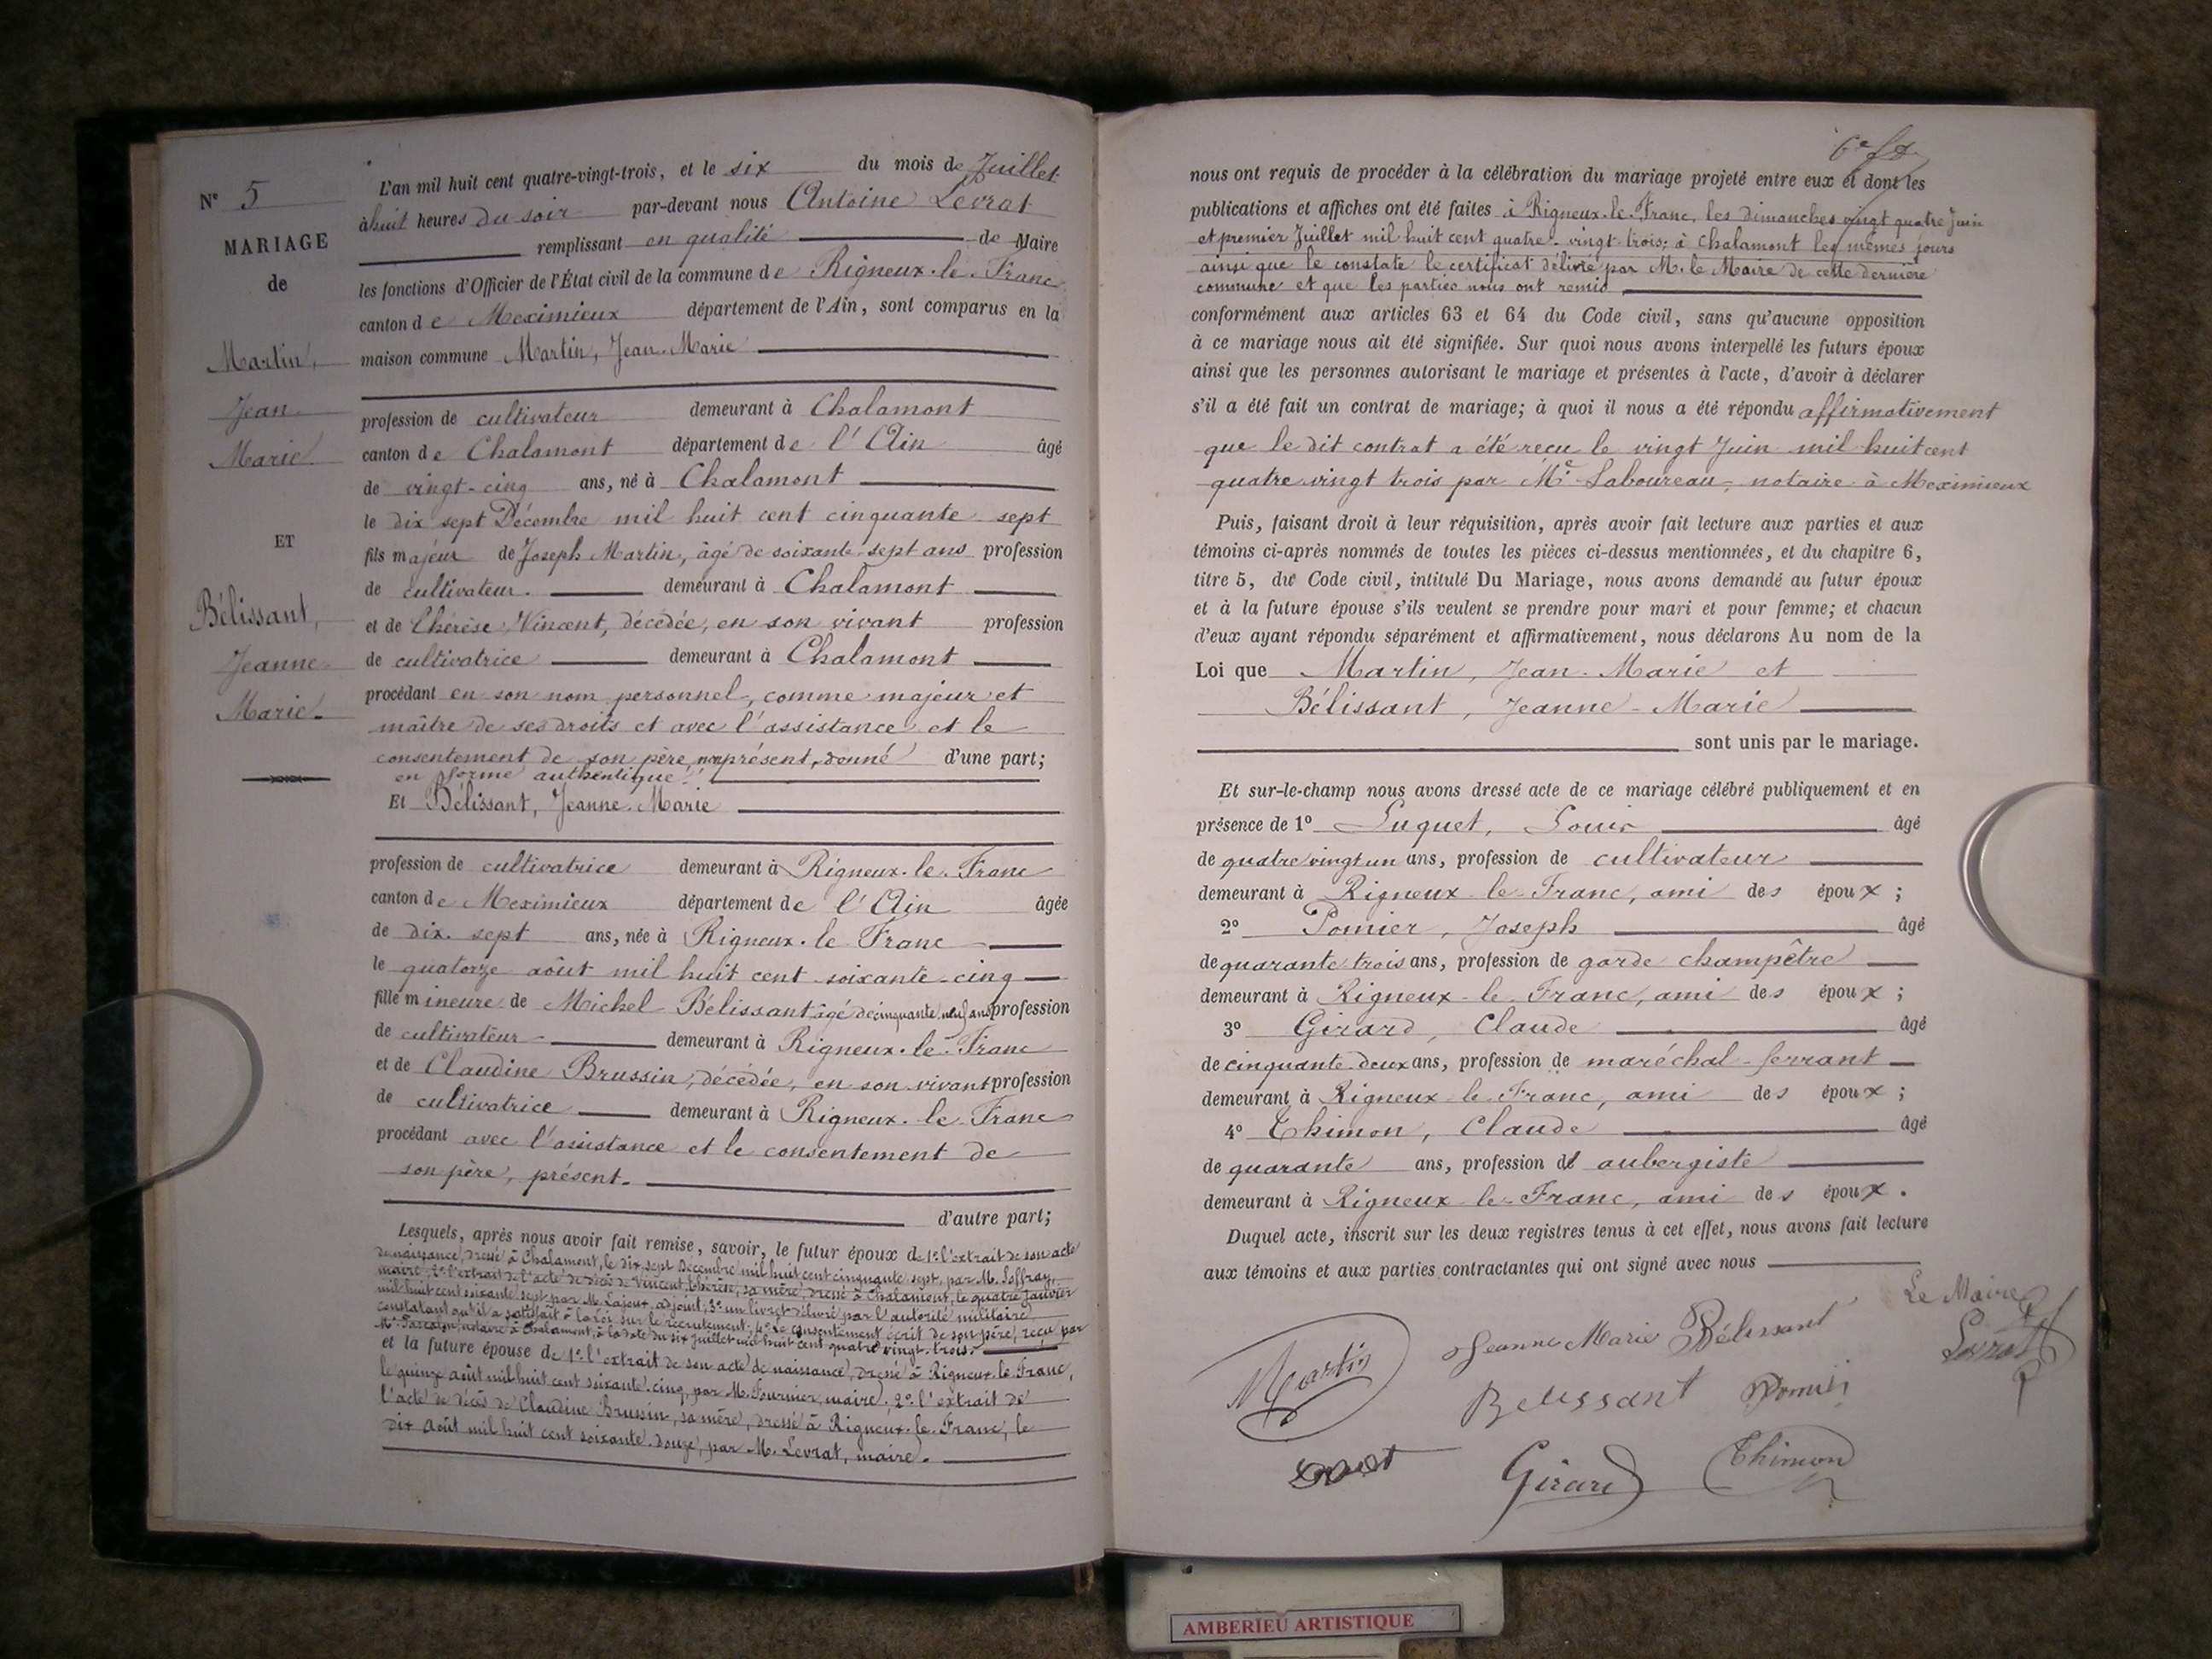 N° 5
MARIAGE
de
Martin,
Jean
Marie
ET
Bélissant,
Jeanne
Marie
L'an mil huit cent quatre-vingt-trois, et le six du mois de Juillet
à huit heures du soir par-devant nous Antoine Levrat
remplissant en qualité de Maire
les fonctions d'Officier de l'État civil de la commune de Rigneux-le-Franc
canton de Meximieux département de l'Ain, sont comparus en la
maison commune Martin, Jean-Marie
profession de cultivateur demeurant à Chalamont
canton de Chalamont département de l'Ain âgé
de vingt-cinq ans, né à Chalamont
le dix sept Décembre mil huit cent cinquante-sept
fils majeur de Joseph Martin, âgé de soixante-sept ans profession
de cultivateur. demeurant à Chalamont
et de Thérèse Vincent, décédée, en son vivant profession
de cultivatrice demeurant à Chalamont
procédant en son nom personnel, comme majeur et
maître de ses droits et avec l'assistance et le
consentement de son père, non présent, donné d'une part;
en forme authentique
Et Bélissant, Jeanne-Marie
profession de cultivatrice demeurant à Rigneux-le-Franc
canton de Meximieux département de l'Ain âgée
de dix-sept ans, née à Rigneux-le-Franc
le quatorze août mil huit cent soixante-cinq
fille mineure de Michel Bélissant âgé de cinquante neuf ans profession
de cultivateur demeurant à Rigneux-le-Franc
et de Claudine Brussin, décédée, en son vivant profession
de cultivatrice demeurant à Rigneux-le-Franc
procédant avec l'assistance et le consentement de
son père, présent.
d'autre part;
Lesquels, après nous avoir fait remise, savoir, le futur époux de 1° l'extrait de son acte
de naissance, dressé à Chalamont, le dix-sept Décembre mil huit cent cinquante-sept, par M. Joffray,
maire, 2° l'extrait de l'acte de décès de Vincent Thérèse, sa mère, dressé à Chalamont, le quatre Janvier
mil huit cent soixante-sept par M. Lajoux, adjoint; 3° un livret délivré par l'autorité militaire
constatant qu'il a satisfait à la loi sur le recrutement; 4° le consentement écrit de son père, reçu par
notaire à Chalamont, à la date du six Juillet mil huit cent quatre vingt-trois.
et la future épouse de 1° l'extrait de son acte de naissance, dressé à Rigneux-le-Franc,
le quinze août mil huit cent soixante-cinq, par M. Fournier, maire; 2° l'extrait de
l'acte de décès de Claudine Brussin, sa mère, dressé à Rigneux-le-Franc, le
dix août mil huit cent soixante-douze, par M. Levrat, maire.
nous ont requis de procéder à la célébration du mariage projeté entre eux et dont les
publications et affiches ont été faites à Rigneux-le-Franc, les Dimanches vingt quatre Juin
et premier Juillet mil huit cent quatre-vingt-trois; à Chalamont les mêmes jours
ainsi que le constate le certificat délivré par M. le Maire de cette dernière
commune et que les parties nous ont remis
conformément aux articles 63 et 64 du Code civil, sans qu'aucune opposition
à ce mariage nous ait été signifiée. Sur quoi nous avons interpellé les futurs époux
ainsi que les personnes autorisant le mariage et présentes à l'acte, d'avoir à déclarer
s'il a été fait un contrat de mariage; à quoi il nous a été répondu affirmativement
que le dit contrat a été reçu le vingt Juin mil huit cent
quatre vingt trois par Me Laboureau, notaire à Meximieux
Puis, faisant droit à leur réquisition, après avoir fait lecture aux parties et aux
témoins ci-après nommés de toutes les pièces ci-dessus mentionnées, et du chapitre 6,
titre 5, du Code civil, intitulé Du Mariage, nous avons demandé au futur époux
et à la future épouse s'ils veulent se prendre pour mari et pour femme; et chacun
d'eux ayant répondu séparément et affirmativement, nous déclarons Au nom de la
Loi que Martin, Jean-Marie et
Bélissant, Jeanne-Marie
sont unis par le mariage.
Et sur-le-champ nous avons dressé acte de ce mariage célébré publiquement et en
présence de 1° Luquet, Louis âgé
de quatre vingt un ans, profession de cultivateur
demeurant à Rigneux-le-Franc, ami des époux;
2° Pomier, Joseph âgé
de quarante trois ans, profession de garde champêtre
demeurant à Rigneux-le-Franc, ami des époux;
3° Girard, Claude âgé
de cinquante-deux ans, profession de maréchal-ferrant
demeurant à Rigneux-le-Franc, ami des époux;
4° Thimon, Claude âgé
de quarante ans, profession de aubergiste
demeurant à Rigneux-le-Franc, ami des époux.
Duquel acte, inscrit sur les deux registres tenus à cet effet, nous avons fait lecture
aux témoins et aux parties contractantes qui ont signé avec nous
Le Maire
Martin Jeanne Marie Bélissant Levrat
Belissant Pomier
Girard Thimon
AMBERIEU ARTISTIQUE